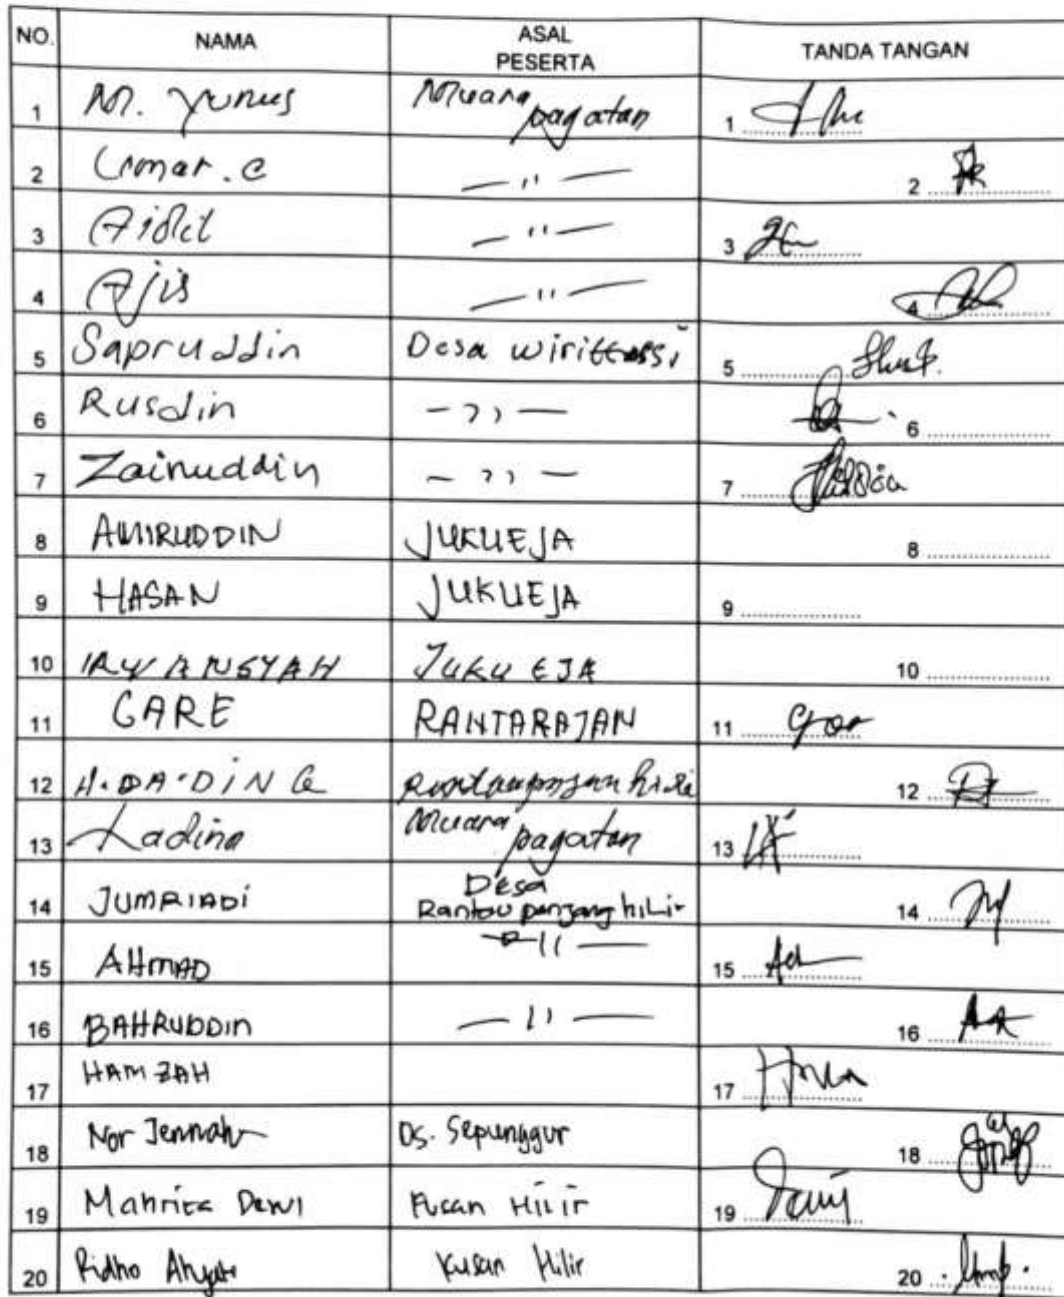 NO. NAMA ASAL PESERTA TANDA TANGAN
1 M. Yunus Muara pagatan 1
2 Umar. C — " — 2
3 Aidil — " — 3
4 Ajis — " — 4
5 Sapruddin Desa wirittassi 5
6 Rusdin — " — 6
7 Zainuddin — " — 7
8 AMIRUDDIN JUKUEJA 8
9 HASAN JUKUEJA 9
10 IRWANSYAH JUKU EJA 10
11 CARE 11
12 H. DA'DING 12
13 Ladina Muara pagatan 13
14 JUMRIADI Desa Rantau panjang hiLir 14
15 AHMAD — " — 15
16 BAHRUDDIN — " — 16
17 HAMZAH 17
18 Nor Jennah Ds. Sepunggur 18
19 Mahrita Dewi Kusan Hilir 19
20 Ridho Kusan Hilir 20